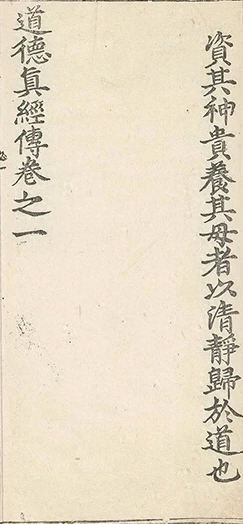 資其神貴養其母者以清靜歸於道也
道德真經傳卷之一